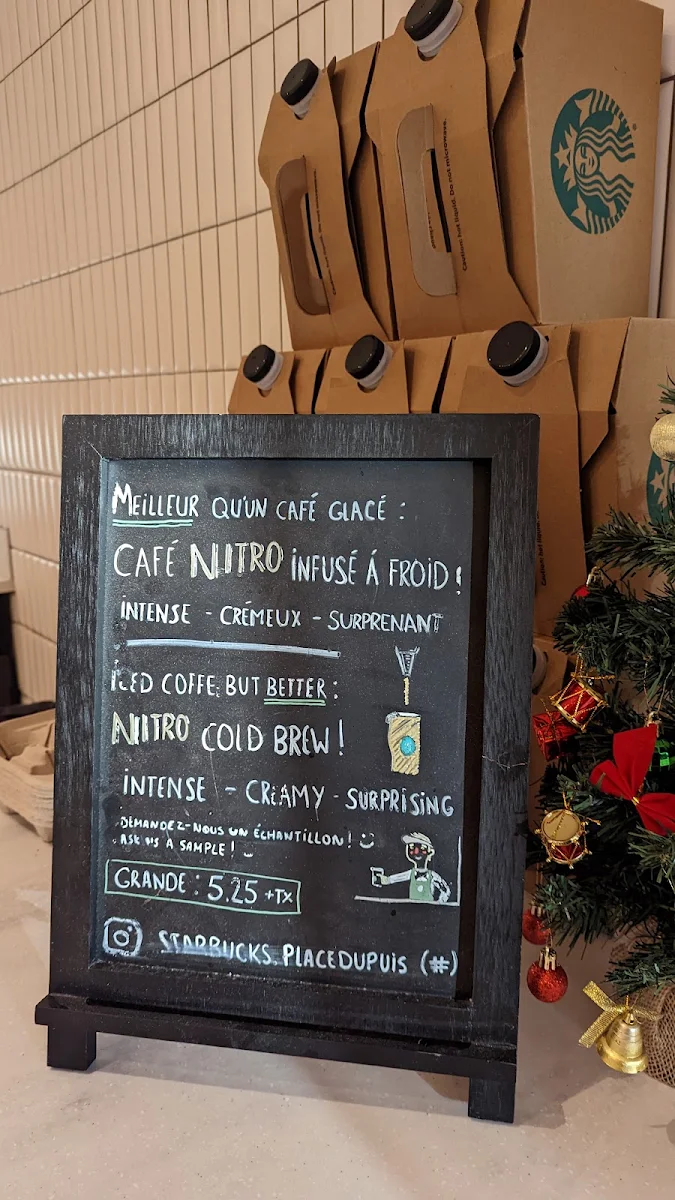 Caution: hot liquid. Do not microwave.
MEILLEUR QU'UN CAFÉ GLACÉ :
CAFÉ NITRO INFUSÉ À FROID !
INTENSE - CRÉMEUX - SURPRENANT
ICED COFFE, BUT BETTER :
NITRO COLD BREW !
INTENSE - CREAMY - SURPRISING
DEMANDEZ-NOUS UN ÉCHANTILLON !
ASK US A SAMPLE !
GRANDE : 5.25 +TX
STARBUCKS.PLACEDUPUIS (#)